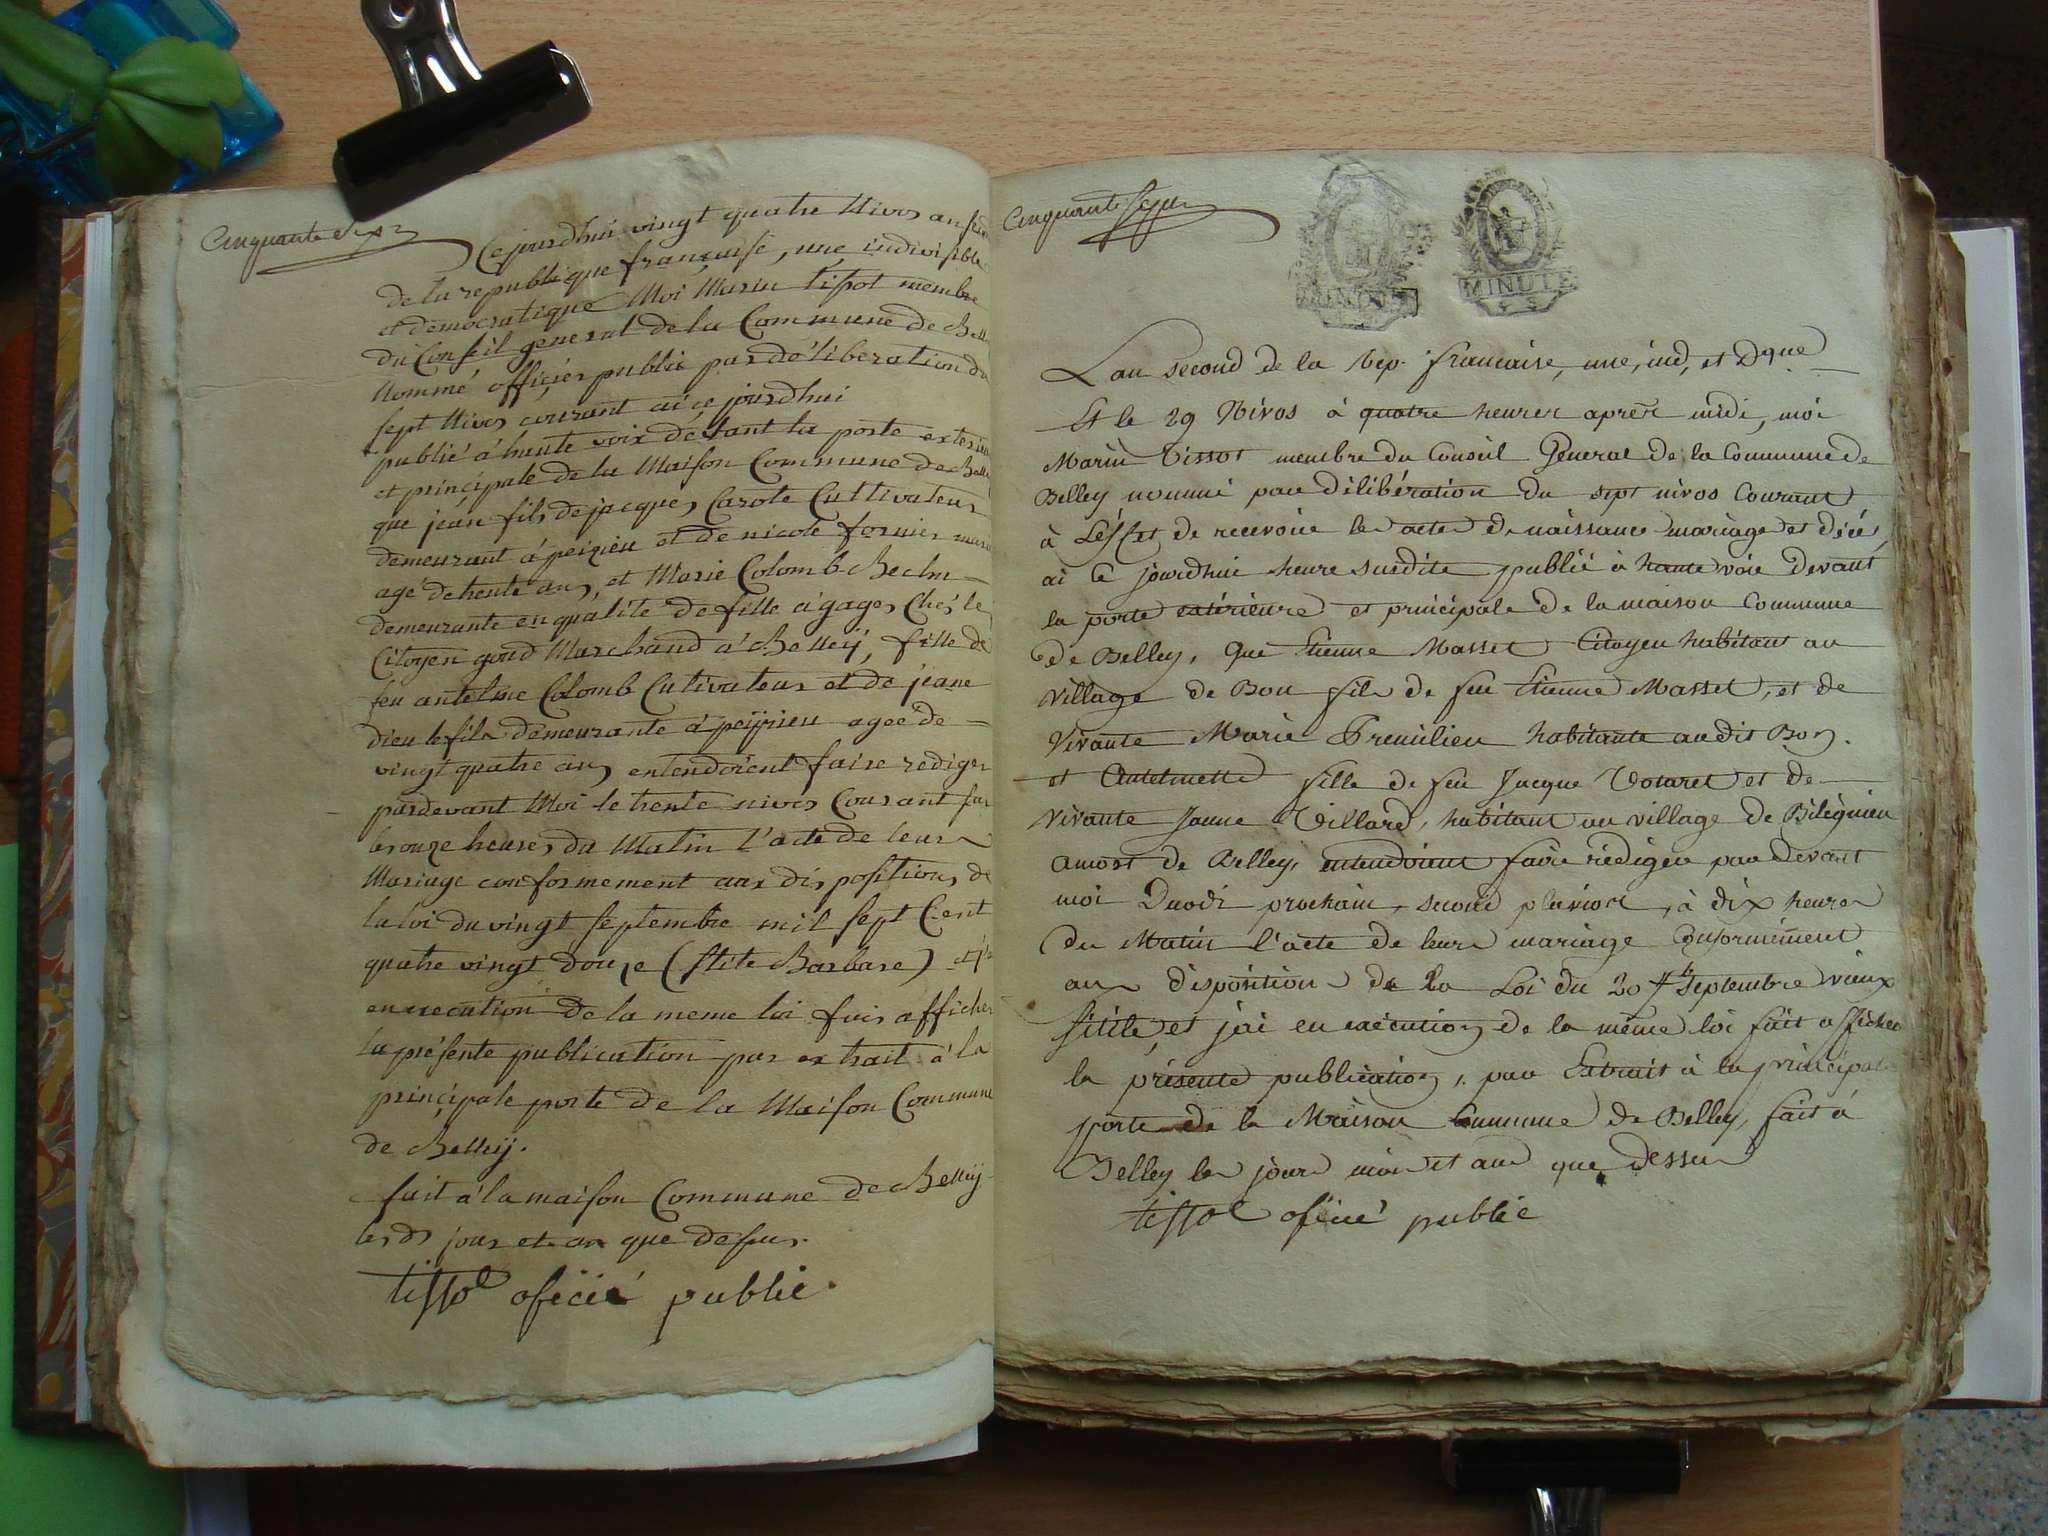 Cinquante six
Cejourdhui vingt quatre Nivos an second
de la republique française, une, indivisible
et democratique Moi Marin tissot membre
du Conseil general de la Commune de Bell
Nommé officier public par déliberation du
sept Nivos courant ai ce jourdhui
publié à haute voix devant la porte exterieu
et principale de la Maison Commune de Belley
que jean fils de jacques Carote Cultivateur
demeurant à peizieu et de nicole fornier mari
agé de trente ans, et Marie Colomb
demeurante en qualité de fille à gages Chés le
Citoyen goud Marchand à Belleÿ, fille de
feu antelme Colomb Cutivateur et de jeane
dieu le fils demeurante à peÿzieu agee de
vingt quatre ans entendoient faire rediger
pardevant Moi le trente nivos Courant sur
les onze heures du Matin l'acte de leur
Mariage conformement aux dispositions de
la loi du vingt septembre mil sept Cent
quatre vingt douze (stile Barbare) et j'ai
en execution de la meme loi fais afficher
la présente publication par extrait à la
principale porte de la Maison Commune
de Belleÿ.
fait à la maison Commune de Belleÿ
les ds jour et an que desus.
tissot oficié public
Cinquante sept
MINUTE
MINUTE
Lan second de la Rep. francaise, une, ind, et Dque
Et le 29 Nivos à quatre heures après midi, moi
Marin Tissot membre du Conseil Général de la Commune de
Belley nommé par délibération du sept nivos Courant
à L'éffet de recevoir les actes de naissance mariage et décés,
ai ce jourdhui heure susdite publié à haute voie devant
la porte extérieure et principale de la maison Commune
de Belley, que Etienne Masset Citoyen habitant au
village de Bon fils de feu Etienne Masset, et de
vivante Marie Premilieu habitante audit Bon.
et Antelmette fille de feu Jacque Touret et de
vivante Jeanne Villard, habitant au village de Bilègnieu
amont de Belley, entendoient faire rédiger par devant
moi Duodi prochain, second pluviose, à dix heures
du Matin l'acte de leur mariage Conformément
aux disposition de la Loi du 20 Septembre vieux
stile, et j'ai en exécution de la même loi fait afficher
la présente publication, par Extrait à la principale
porte de la Maison Commune de Belley, fait à
Belley les jour mois et an que dessus
tissot oficié public